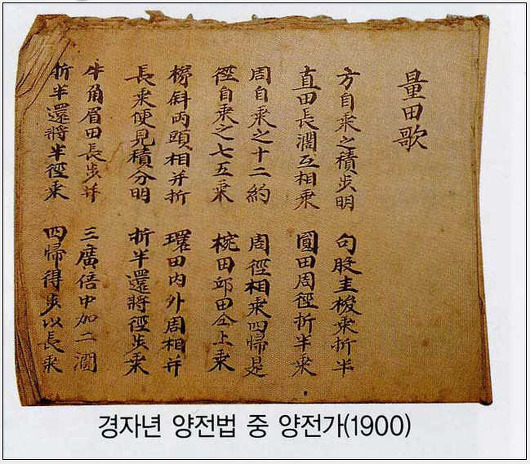 量田歌
方自乘之積步明 句股圭梭乘折半
直田長濶互相乘 圓田周徑折半乘
周自乘之十二約 周徑相乘四歸是
徑自乘之七五乘 椀田邱田仝上乘
梯斜兩頭相并折 環田內外周相并
長乘便見積分明 折半還將徑步乘
牛角眉田長步并 三廣倍中加二濶
折半還將半徑乘 四歸得步以長乘
경자년 양전법 중 양전가(1900)